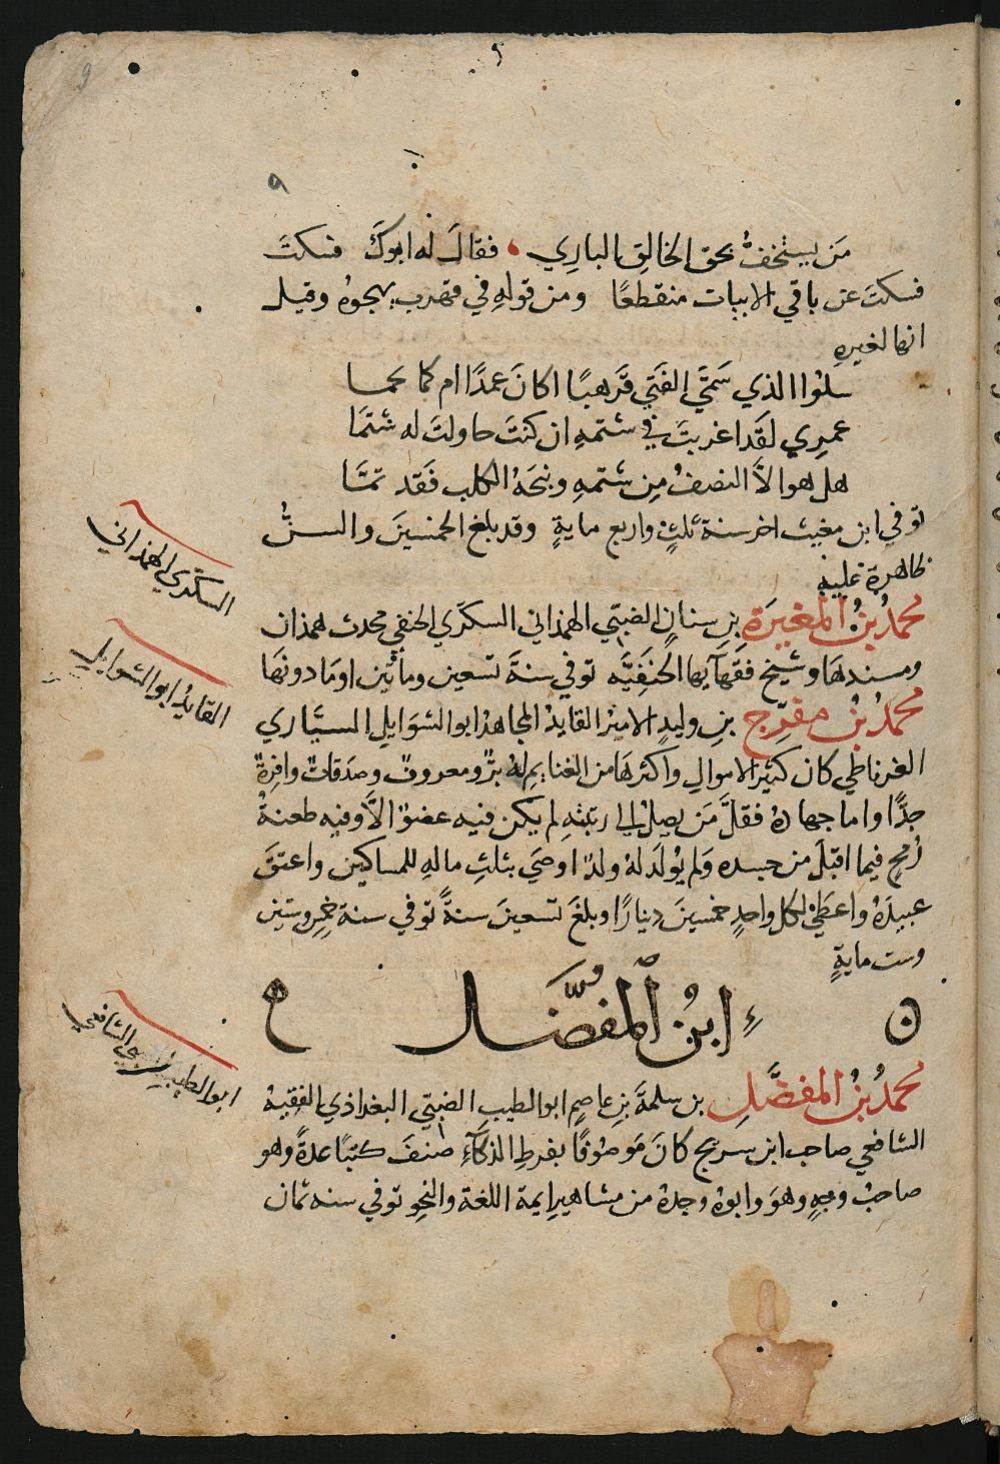 ٩
مَن يستخفُّ بحق الخالِق الباري فقالَ له ابوكَ فسكتَ
فسكتَ عن باقي الابيات منقطعًا ومن قولهِ في قهرب يهجوهُ وقيل
انها لغيرهِ
سلوا الذي سَمَّي الفَتَي قَرهبًا اكانَ عمدًا ام كما
عمرِي لقَد اغربتَ في شتمهِ ان كنتَ حاولتَ له شتمَا
هل هو الاَّ النصفُ مِن شتمهِ ونبحَهُ الكلب فَقد تمَّا
توفي ابن مغيث اخر سنة ثلثٍ واربع مايةٍ وقد بلغ الخمسينَ والسنُّ
ظاهرة عليهِ
محمدُ بنُ المغيرَةِ بنِ سنانٍ الضبّي الهمذاني السكّري الحنفي محدث همذان
ومسندهَا وشيخ فقهَآيها الحَنَفِيَّه توفي سنةَ تسعين ومائتين اومَا دونهَا
محمدُ بنُ مفرّج بنِ وليدٍ الاميرُ القايدُ المجاهدُ ابو الشوَايل السيَّاري
الغرناطي كان كثيرَ الاموالِ واكثرهَا من الغنايمِ لهُ برٌّ ومعروفٌ وصدقاتٌ وافرةٌ
جدًّا واما جهادهُ فقلَّ مَن يصلُ الي رتبتهِ لم يكن فيه عضوٌ الاَّ وفيه طعنةُ
رُمحٍ فيما اقبلَ من جسده ولم يُولَد لهُ ولدٌ اوصَي بثلثِ مالهِ للمساكين واعتقَ
عبيدَهُ واعطَي لكل واحدٍ خمسينَ دينارًا وبلغَ تسعينَ سنةً توفي سنة خمسٍ وستين
وست مايةٍ
ابنُ المُفضَّل
محمدُ بنُ المفضَّلِ بن سلمةَ بنِ عاصمٍ ابو الطيب الضبّي البغداذي الفقيهُ
الشافعي صاحب ابن سريج كانَ مَوصُوفًا بفرطِ الذكآءِ صنفَ كتبًا عدةً وهو
صاحبُ وجهٍ وهوَ وابوهُ وجدهُ من مشاهيرِ ايمة اللغة والنحوِ توفي سنه ثمان
السكّري الهمذاني
القايدُ ابو الشوايل
ابو الطيب الضبي الشافعي